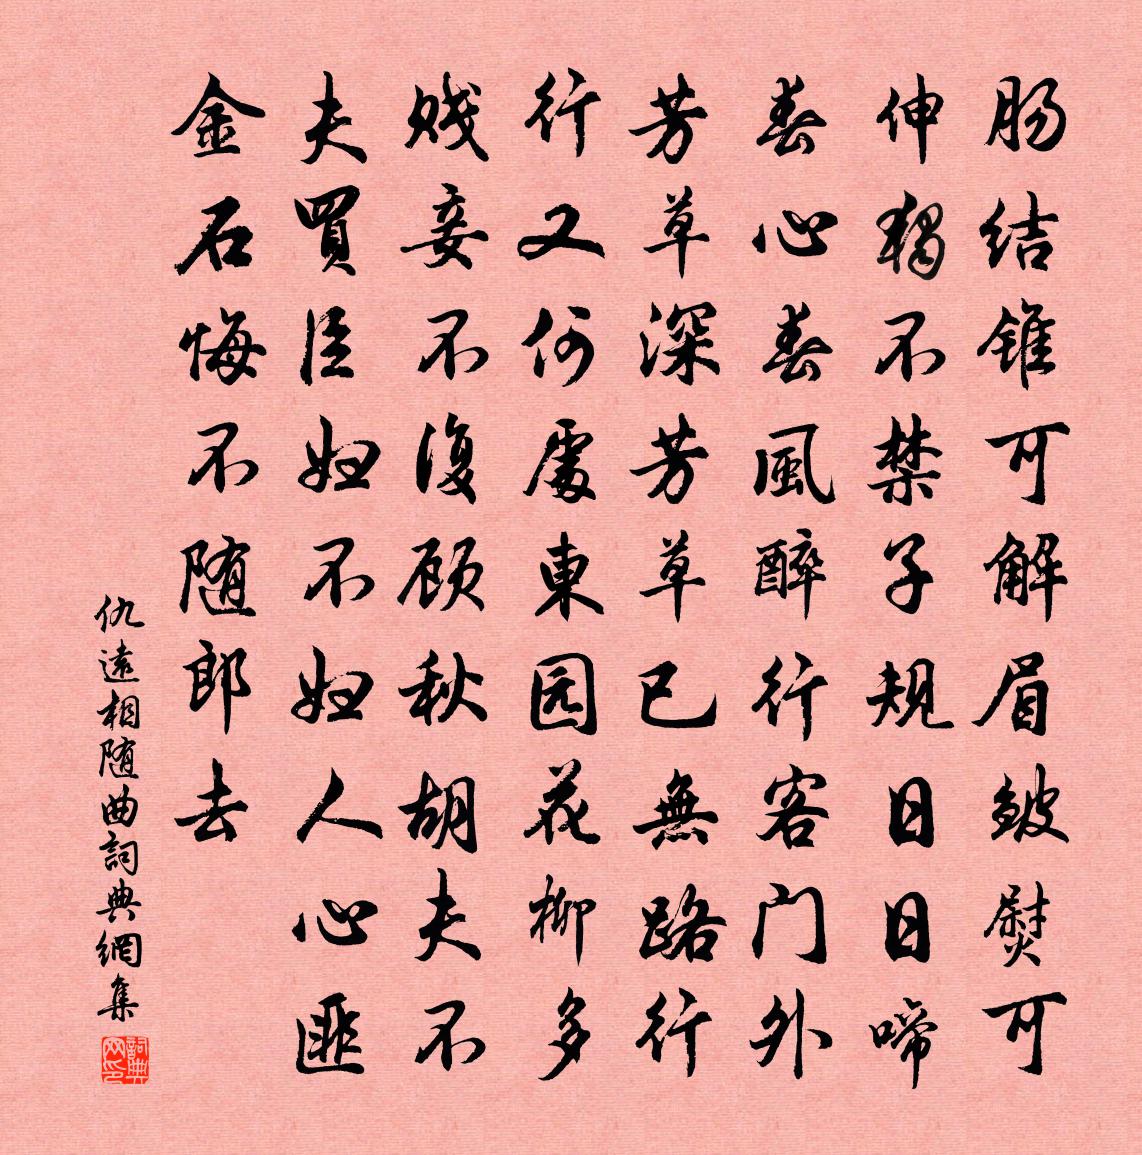 肠结锥可解眉皱熨可
伸獨不禁子規日日啼
春心春風醉行客门外
芳草深芳草已無路行
行又何處東园花柳多
贱妾不復顾秋胡夫不
夫買臣妇不妇人心匪
金石悔不随郎去
仇遠相随曲詞典網集
詞典网印